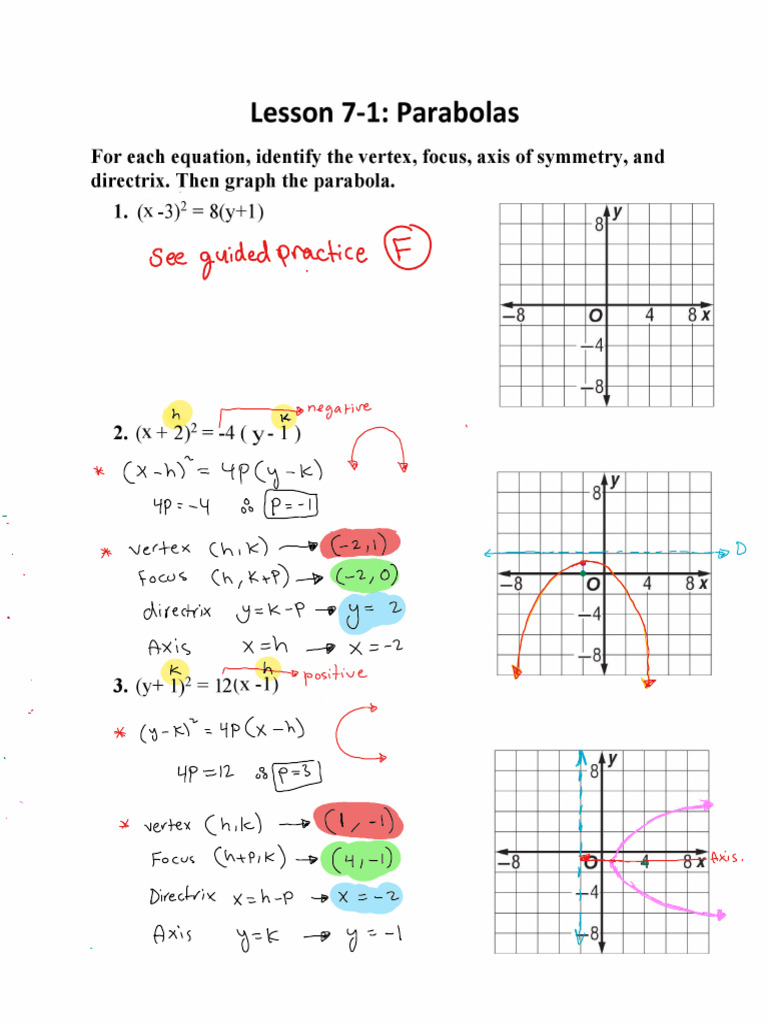 Lesson 7-1: Parabolas
For each equation, identify the vertex, focus, axis of symmetry, and
directrix. Then graph the parabola.
1. (x -3)² = 8(y+1)
See guided practice F
y
8
−8 O 4 8 x
−4
−8
h k negative
2. (x + 2)² = -4 ( y - 1 )
* (x-h)² = 4P(y-k)
4P = -4 ∴ P = -1
* vertex (h,k) → (-2,1)
Focus (h, k+P) → (-2,0)
directrix y=k-P → y= 2
Axis x=h → x=-2
y
8
D
−8 O 4 8 x
−4
−8
k h positive
3. (y+ 1)² = 12(x -1)
* (y-k)² = 4P(x-h)
4P = 12 ∴ P=3
* vertex (h,k) → (1, -1)
Focus (h+P,k) → (4,-1)
Directrix x=h-P → x = -2
Axis y=k → y = -1
y
8
−8 O 4 8 x Axis.
−4
−8